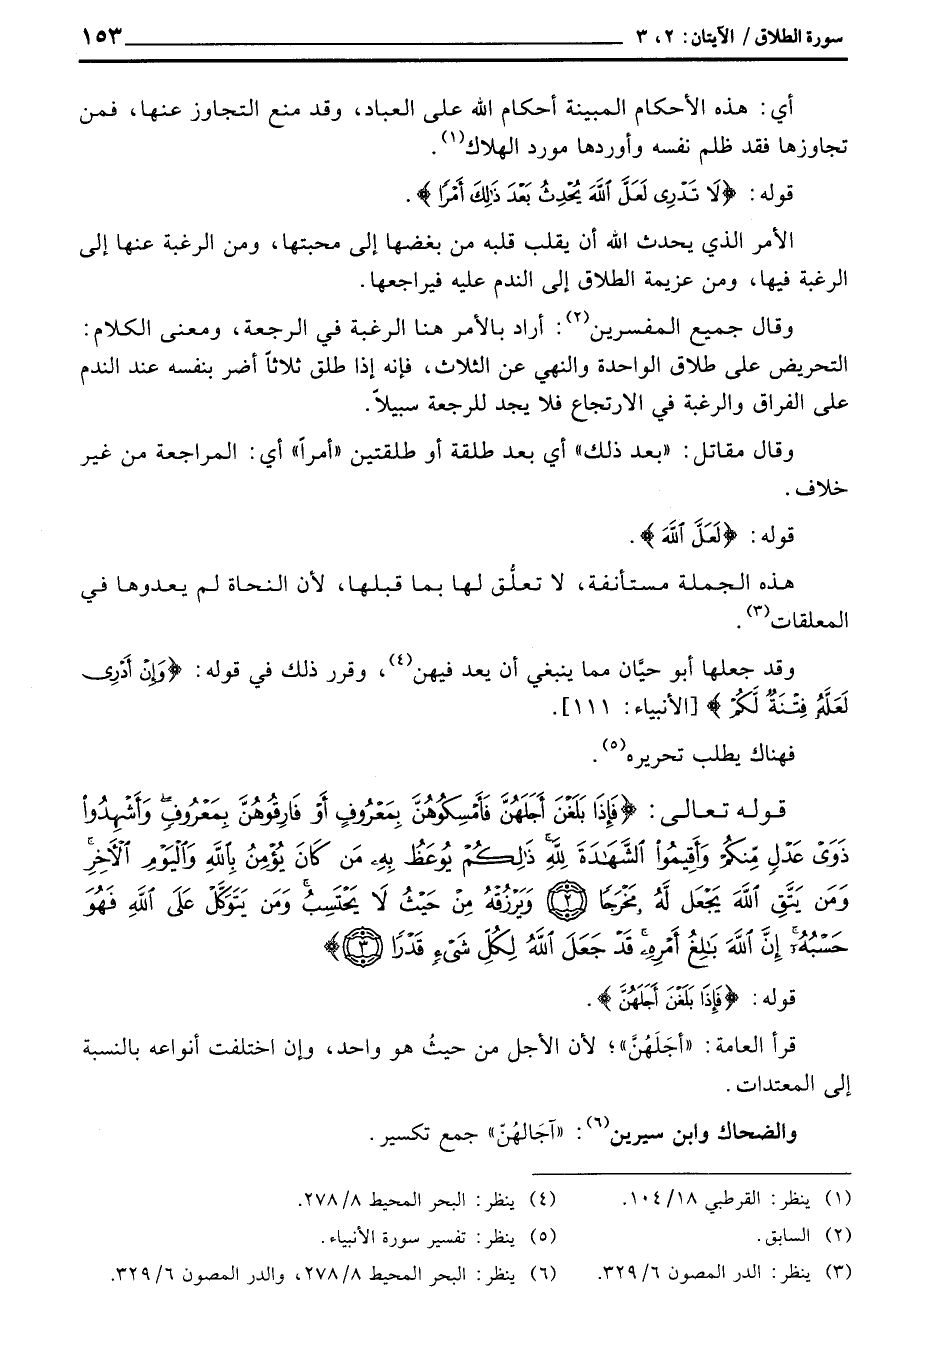 سورة الطلاق / الآيتان: ٢، ٣ ١٥٣
أي: هذه الأحكام المبينة أحكام الله على العباد، وقد منع التجاوز عنها، فمن
تجاوزها فقد ظلم نفسه وأوردها مورد الهلاك(١).
قوله: ﴿لَا تَدْرِى لَعَلَّ ٱللَّهَ يُحْدِثُ بَعْدَ ذَٰلِكَ أَمْرًا﴾.
الأمر الذي يحدث الله أن يقلب قلبه من بغضها إلى محبتها، ومن الرغبة عنها إلى
الرغبة فيها، ومن عزيمة الطلاق إلى الندم عليه فيراجعها.
وقال جميع المفسرين(٢): أراد بالأمر هنا الرغبة في الرجعة، ومعنى الكلام:
التحريض على طلاق الواحدة والنهي عن الثلاث، فإنه إذا طلق ثلاثاً أضر بنفسه عند الندم
على الفراق والرغبة في الارتجاع فلا يجد للرجعة سبيلاً.
وقال مقاتل: «بعد ذلك» أي بعد طلقة أو طلقتين «أمراً» أي: المراجعة من غير
خلاف.
قوله: ﴿لَعَلَّ ٱللَّهَ﴾.
هذه الجملة مستأنفة، لا تعلُّق لها بما قبلها، لأن النحاة لم يعدوها في
المعلقات(٣).
وقد جعلها أبو حيَّان مما ينبغي أن يعد فيهن(٤)، وقرر ذلك في قوله: ﴿وَإِنْ أَدْرِى
لَعَلَّهُ فِتْنَةٌ لَّكُمْ﴾ [الأنبياء: ١١١].
فهناك يطلب تحريره(٥).
قوله تعالى: ﴿فَإِذَا بَلَغْنَ أَجَلَهُنَّ فَأَمْسِكُوهُنَّ بِمَعْرُوفٍ أَوْ فَارِقُوهُنَّ بِمَعْرُوفٍ وَأَشْهِدُوا۟
ذَوَىْ عَدْلٍ مِّنكُمْ وَأَقِيمُوا۟ ٱلشَّهَٰدَةَ لِلَّهِ ۚ ذَٰلِكُمْ يُوعَظُ بِهِۦ مَن كَانَ يُؤْمِنُ بِٱللَّهِ وَٱلْيَوْمِ ٱلْآخِرِ ۚ
وَمَن يَتَّقِ ٱللَّهَ يَجْعَل لَّهُۥ مَخْرَجًا ﴿٢﴾ وَيَرْزُقْهُ مِنْ حَيْثُ لَا يَحْتَسِبُ ۚ وَمَن يَتَوَكَّلْ عَلَى ٱللَّهِ فَهُوَ
حَسْبُهُۥٓ ۚ إِنَّ ٱللَّهَ بَٰلِغُ أَمْرِهِۦ ۚ قَدْ جَعَلَ ٱللَّهُ لِكُلِّ شَىْءٍ قَدْرًا ﴿٣﴾﴾
قوله: ﴿فَإِذَا بَلَغْنَ أَجَلَهُنَّ﴾.
قرأ العامة: «أجَلَهُنَّ»؛ لأن الأجل من حيثُ هو واحد، وإن اختلفت أنواعه بالنسبة
إلى المعتدات.
والضحاك وابن سيرين(٦): «آجَالهُنّ» جمع تكسير.
(١) ينظر: القرطبي ١٨/ ١٠٤. (٤) ينظر: البحر المحيط ٨/ ٢٧٨.
(٢) السابق. (٥) ينظر: تفسير سورة الأنبياء.
(٣) ينظر: الدر المصون ٦/ ٣٢٩. (٦) ينظر: البحر المحيط ٨/ ٢٧٨، والدر المصون ٦/ ٣٢٩.